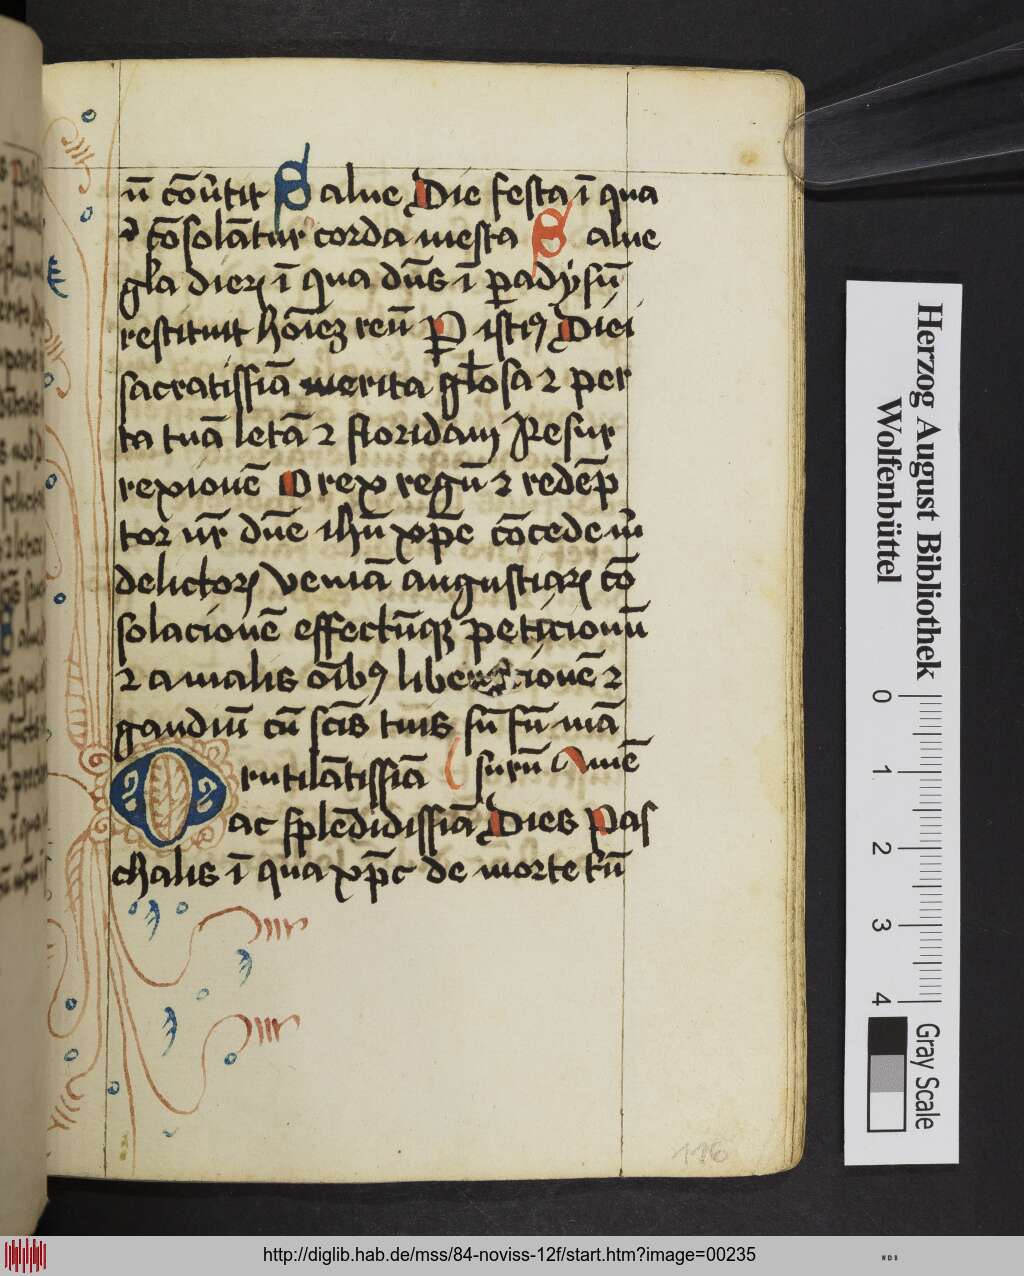 n̄ cōūtit Salue Die festa ī qua
ꝛ cōsolātur corda mesta Salue
gl̄a dieꝝ ī qua dn̄s ī ꝑadÿsū
restituit hōiez reū P istꝰ Diei
sacratissīā merita gl̄osa ⁊ per
ta tuā letā ⁊ floridam Resur
rexionē O rex regū ⁊ redēp
tor nr̄ dn̄e ihū xp̄e cōcede
delictoꝝ veniā angustiaꝝ cō
solacionē effectūqꝫ peticionū
⁊ a malis oībꝰ liberacionē ⁊
gaudiū cū scīs tuis sn̄ fū mā
O rutilātissīā surū Amē
ac splēdidissīā Dies Pas
chalis ī qua xp̄c de morte tū
116
Herzog August Bibliothek
Wolfenbüttel
0 1 2 3 4
Gray Scale
http://diglib.hab.de/mss/84-noviss-12f/start.htm?image=00235